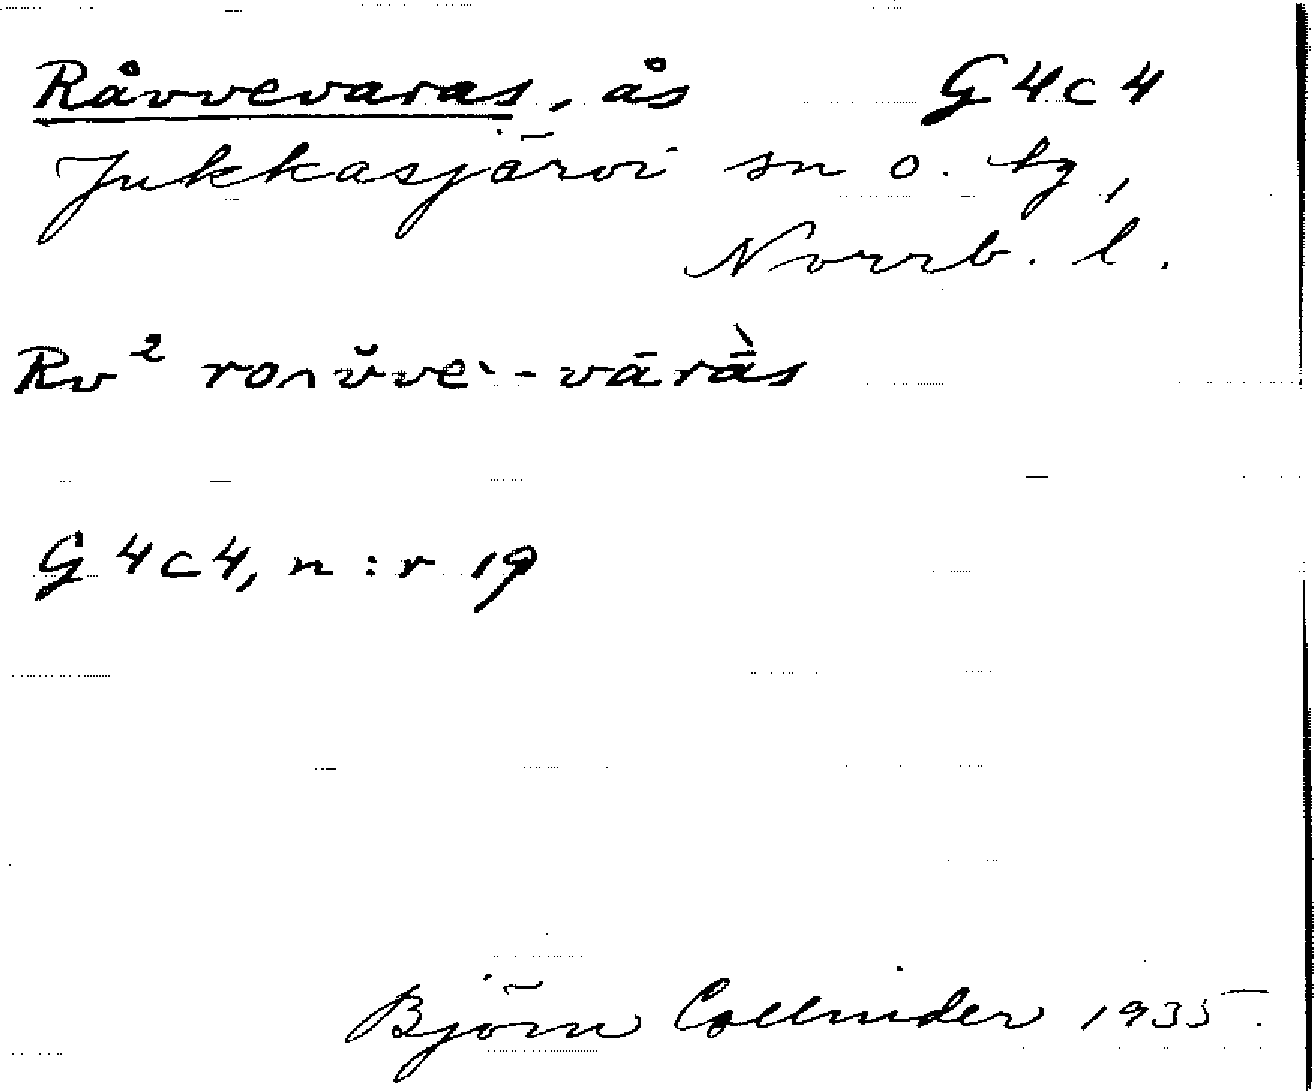 Råvvevaras, ås G4c4
Jukkasjärvi sn o. tg,
Norrb. l.
Rv² 
G4c4, n:r 19
Björn Collinder 1935.